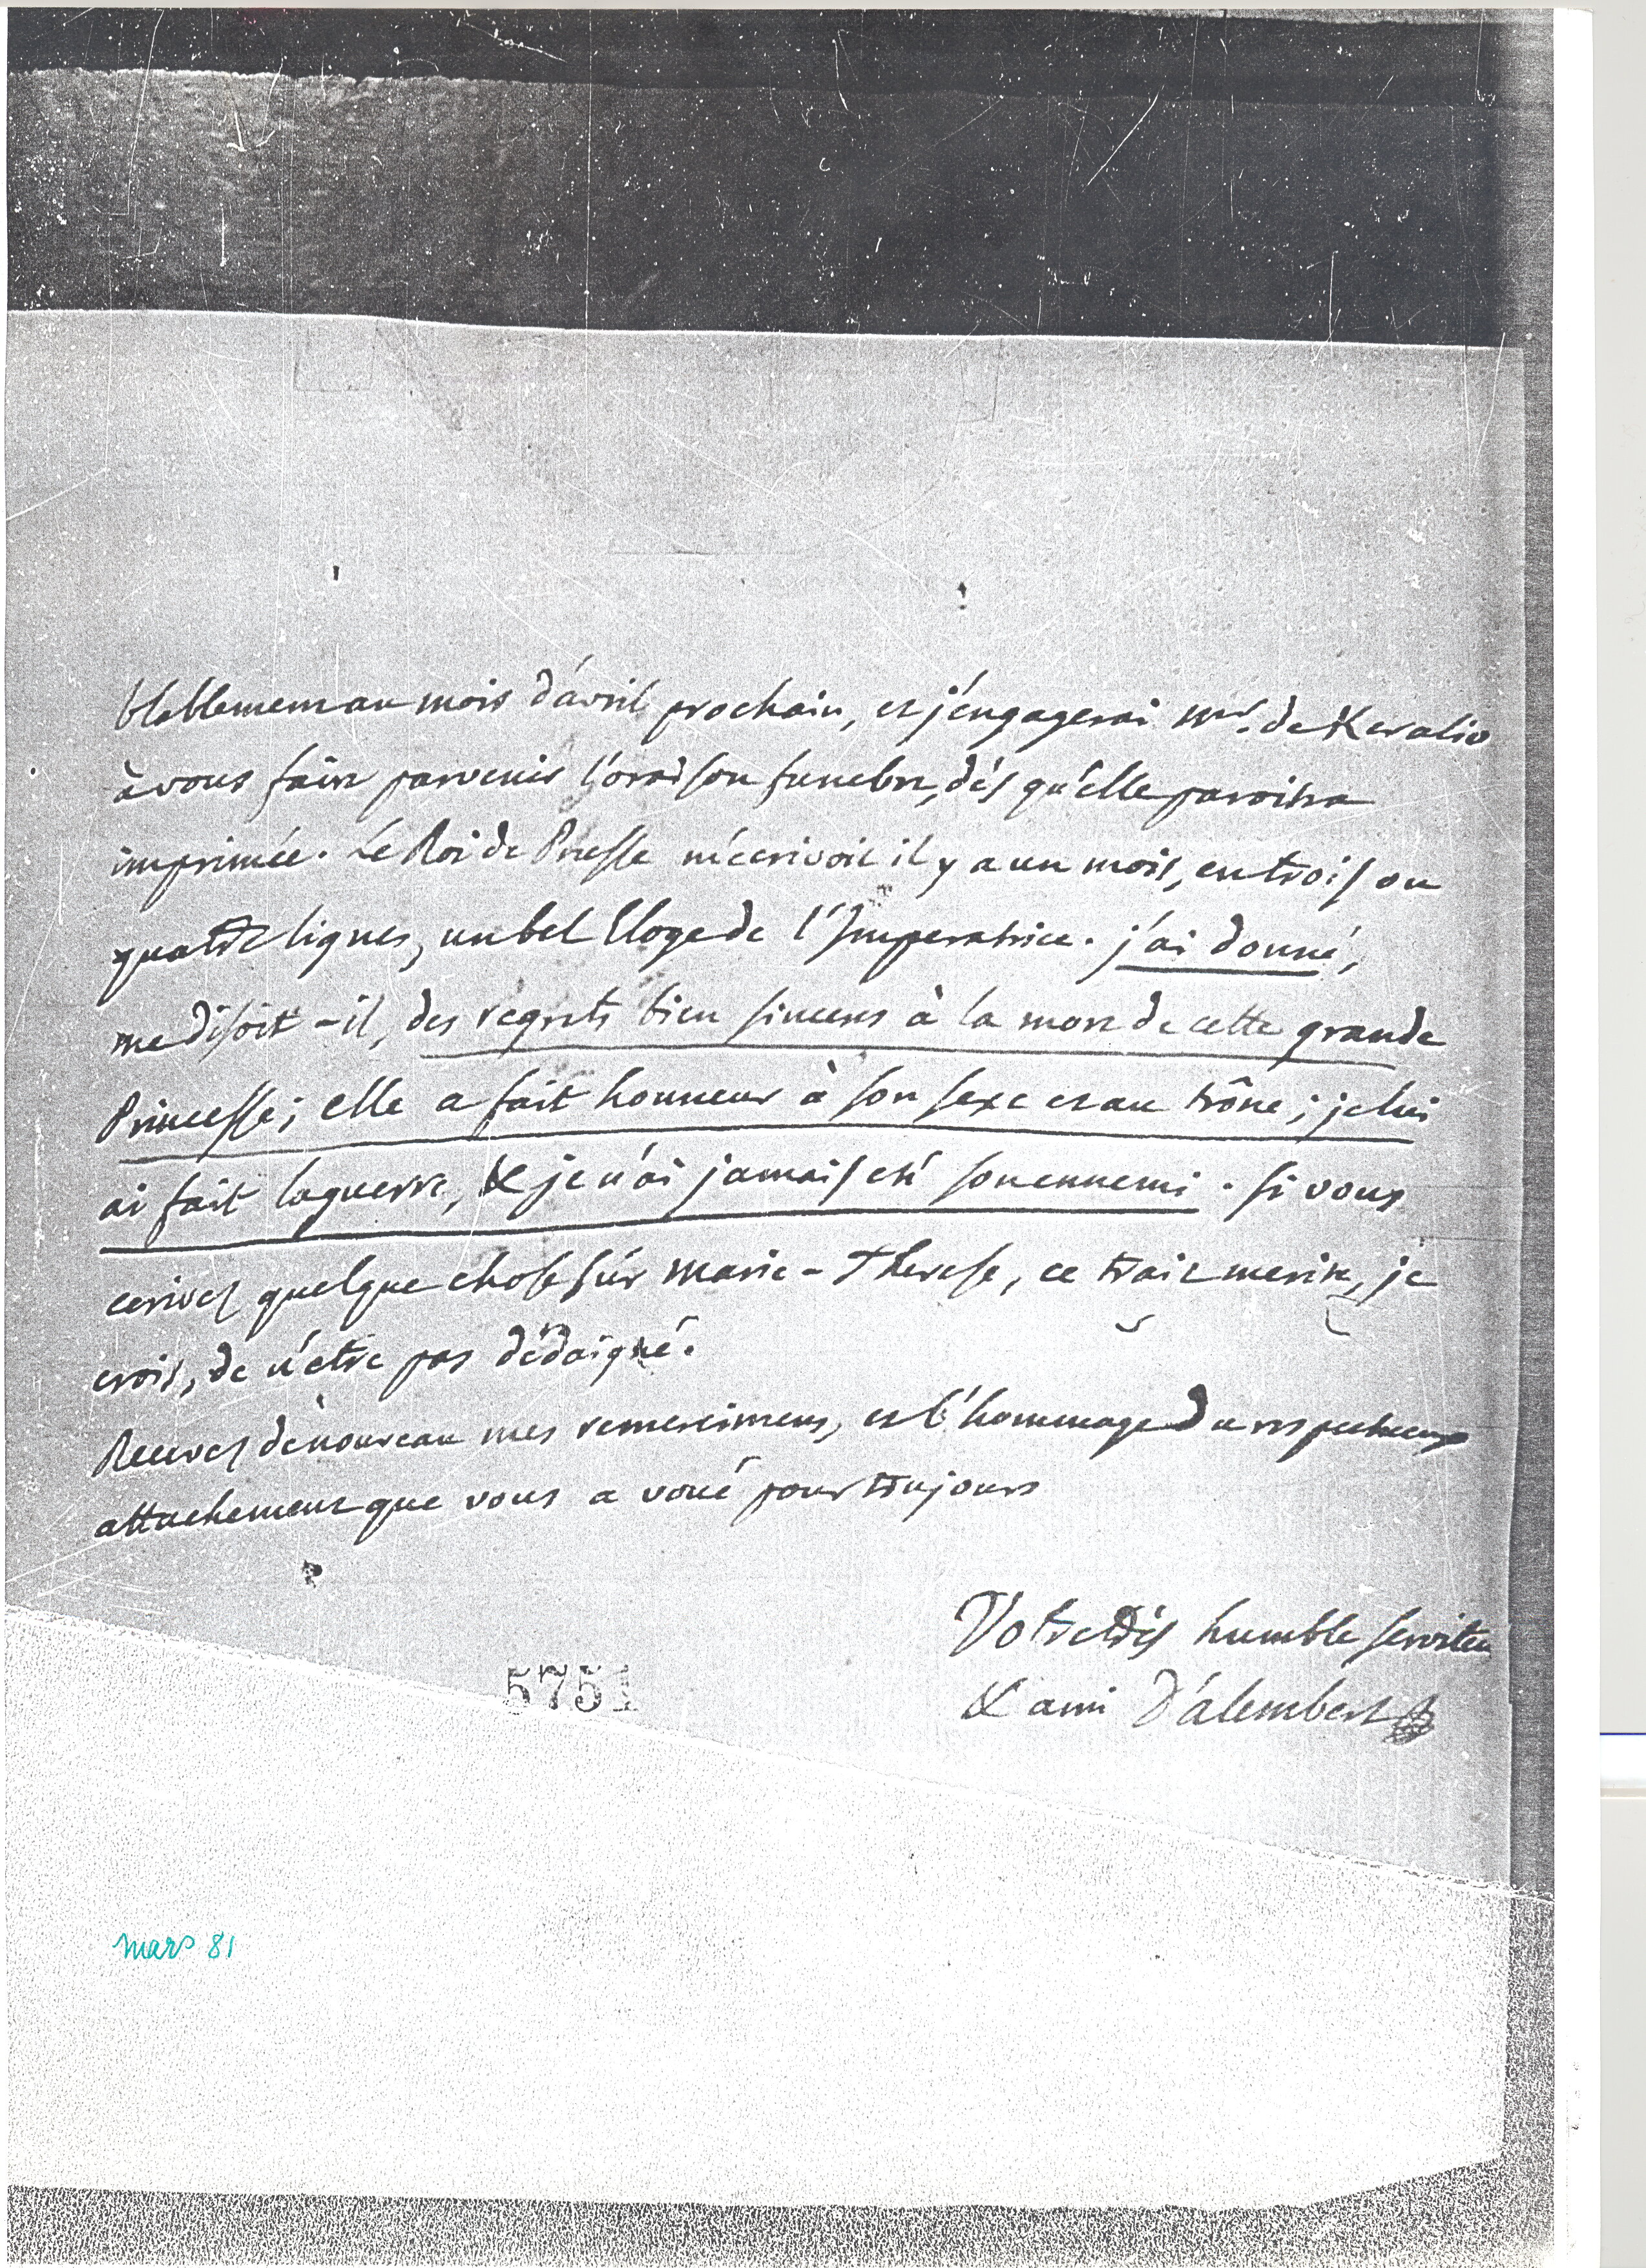 blablement au mois d'avril prochain, et j'engagerai Mr. de Keralio
à vous faire parvenir l'oraison funebre, dès qu'elle paroitra
imprimée. Le Roi de Prusse m'ecrivoit il y a un mois, en trois ou
quatre lignes, un bel Eloge de l'Imperatrice. j'ai donné,
me disoit-il, des regrets bien sinceres à la mort de cette grande
Princesse; elle a fait honneur à son sexe et au trône; je lui
ai fait la guerre, & je n'ai jamais eté son ennemi. si vous
ecrivez quelque chose sur Marie-Therese, ce trait merite, je
crois, de n'etre pas dédaigné.
Recevez de nouveau mes remercimens, et l'hommage du respectueux
attachement que vous a voué pour toujours
Votre très humble serviteu
& ami D'alembert
5751
mars 81